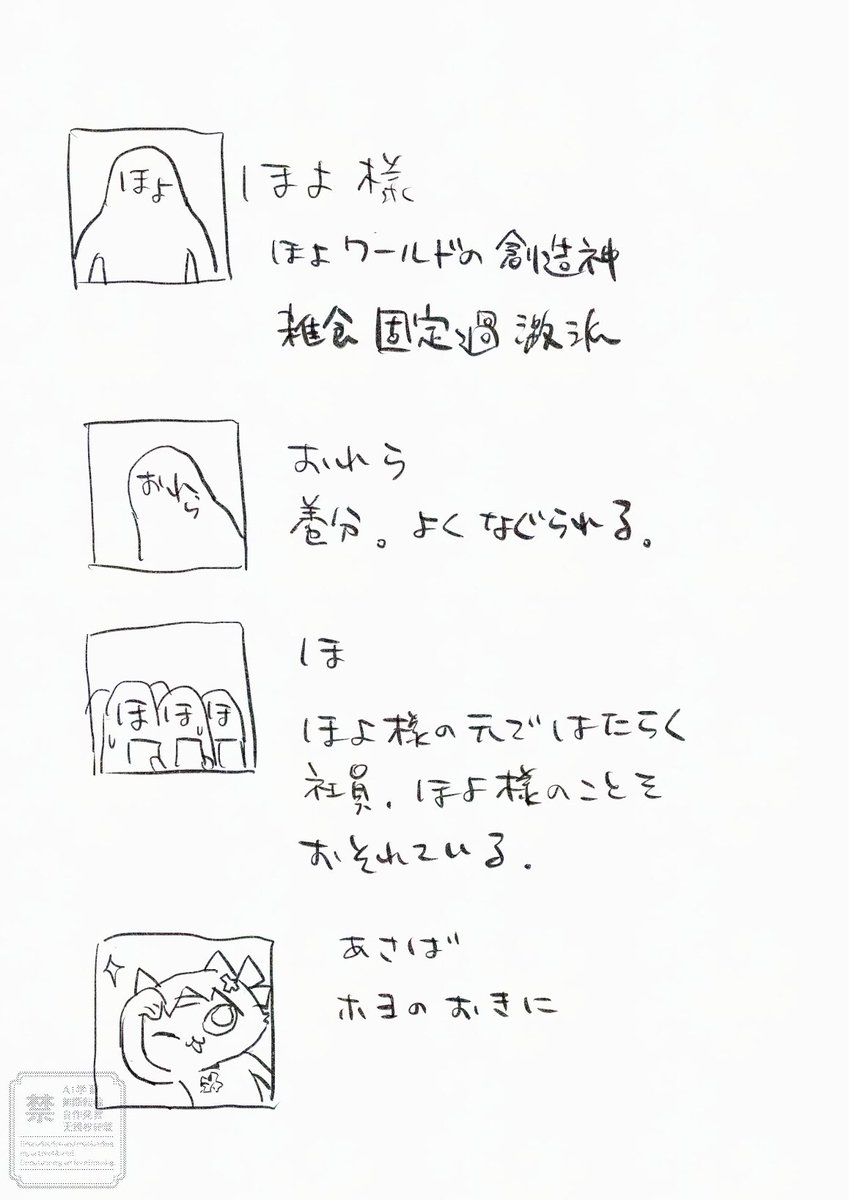 ほよ
ほよ様
ほよワールドの創造神
雑食固定過激派
おれら
おれら
養分。よくなぐられる。
ほ ほ ほ
ほ
ほよ様の元ではたらく
社員。ほよ様のことを
おそれている。
あさば
ホヨのおきに
禁
AI学習
無断転載
自作発言
无授权转载